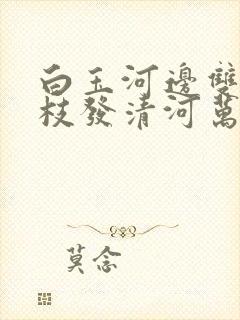 白玉河邊雙
枝發清河萬
莫念